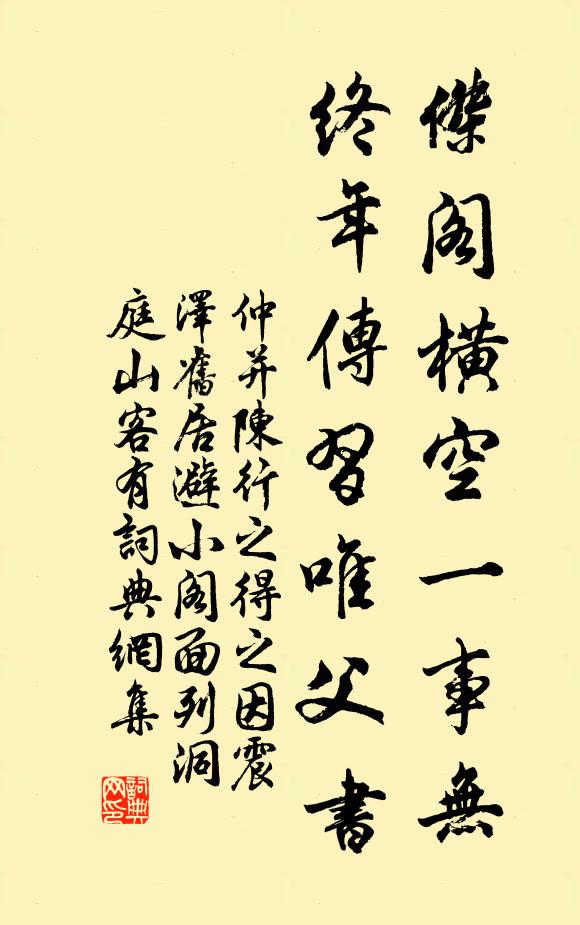 傑閣橫空一事無
終年傳習唯父書
仲并陳行之得之因震
澤舊居避小閣面列洞
庭山客有詞典網集
詞典网印